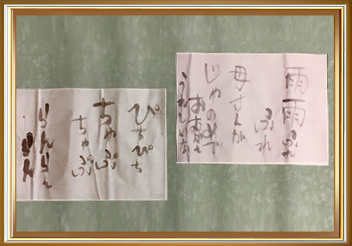 雨雨ふれ
ふれ
母さんが
じゃのめで
うれしいな
ぴちぴち
ちゃぷ
ちゃぷ
らんらん
らん